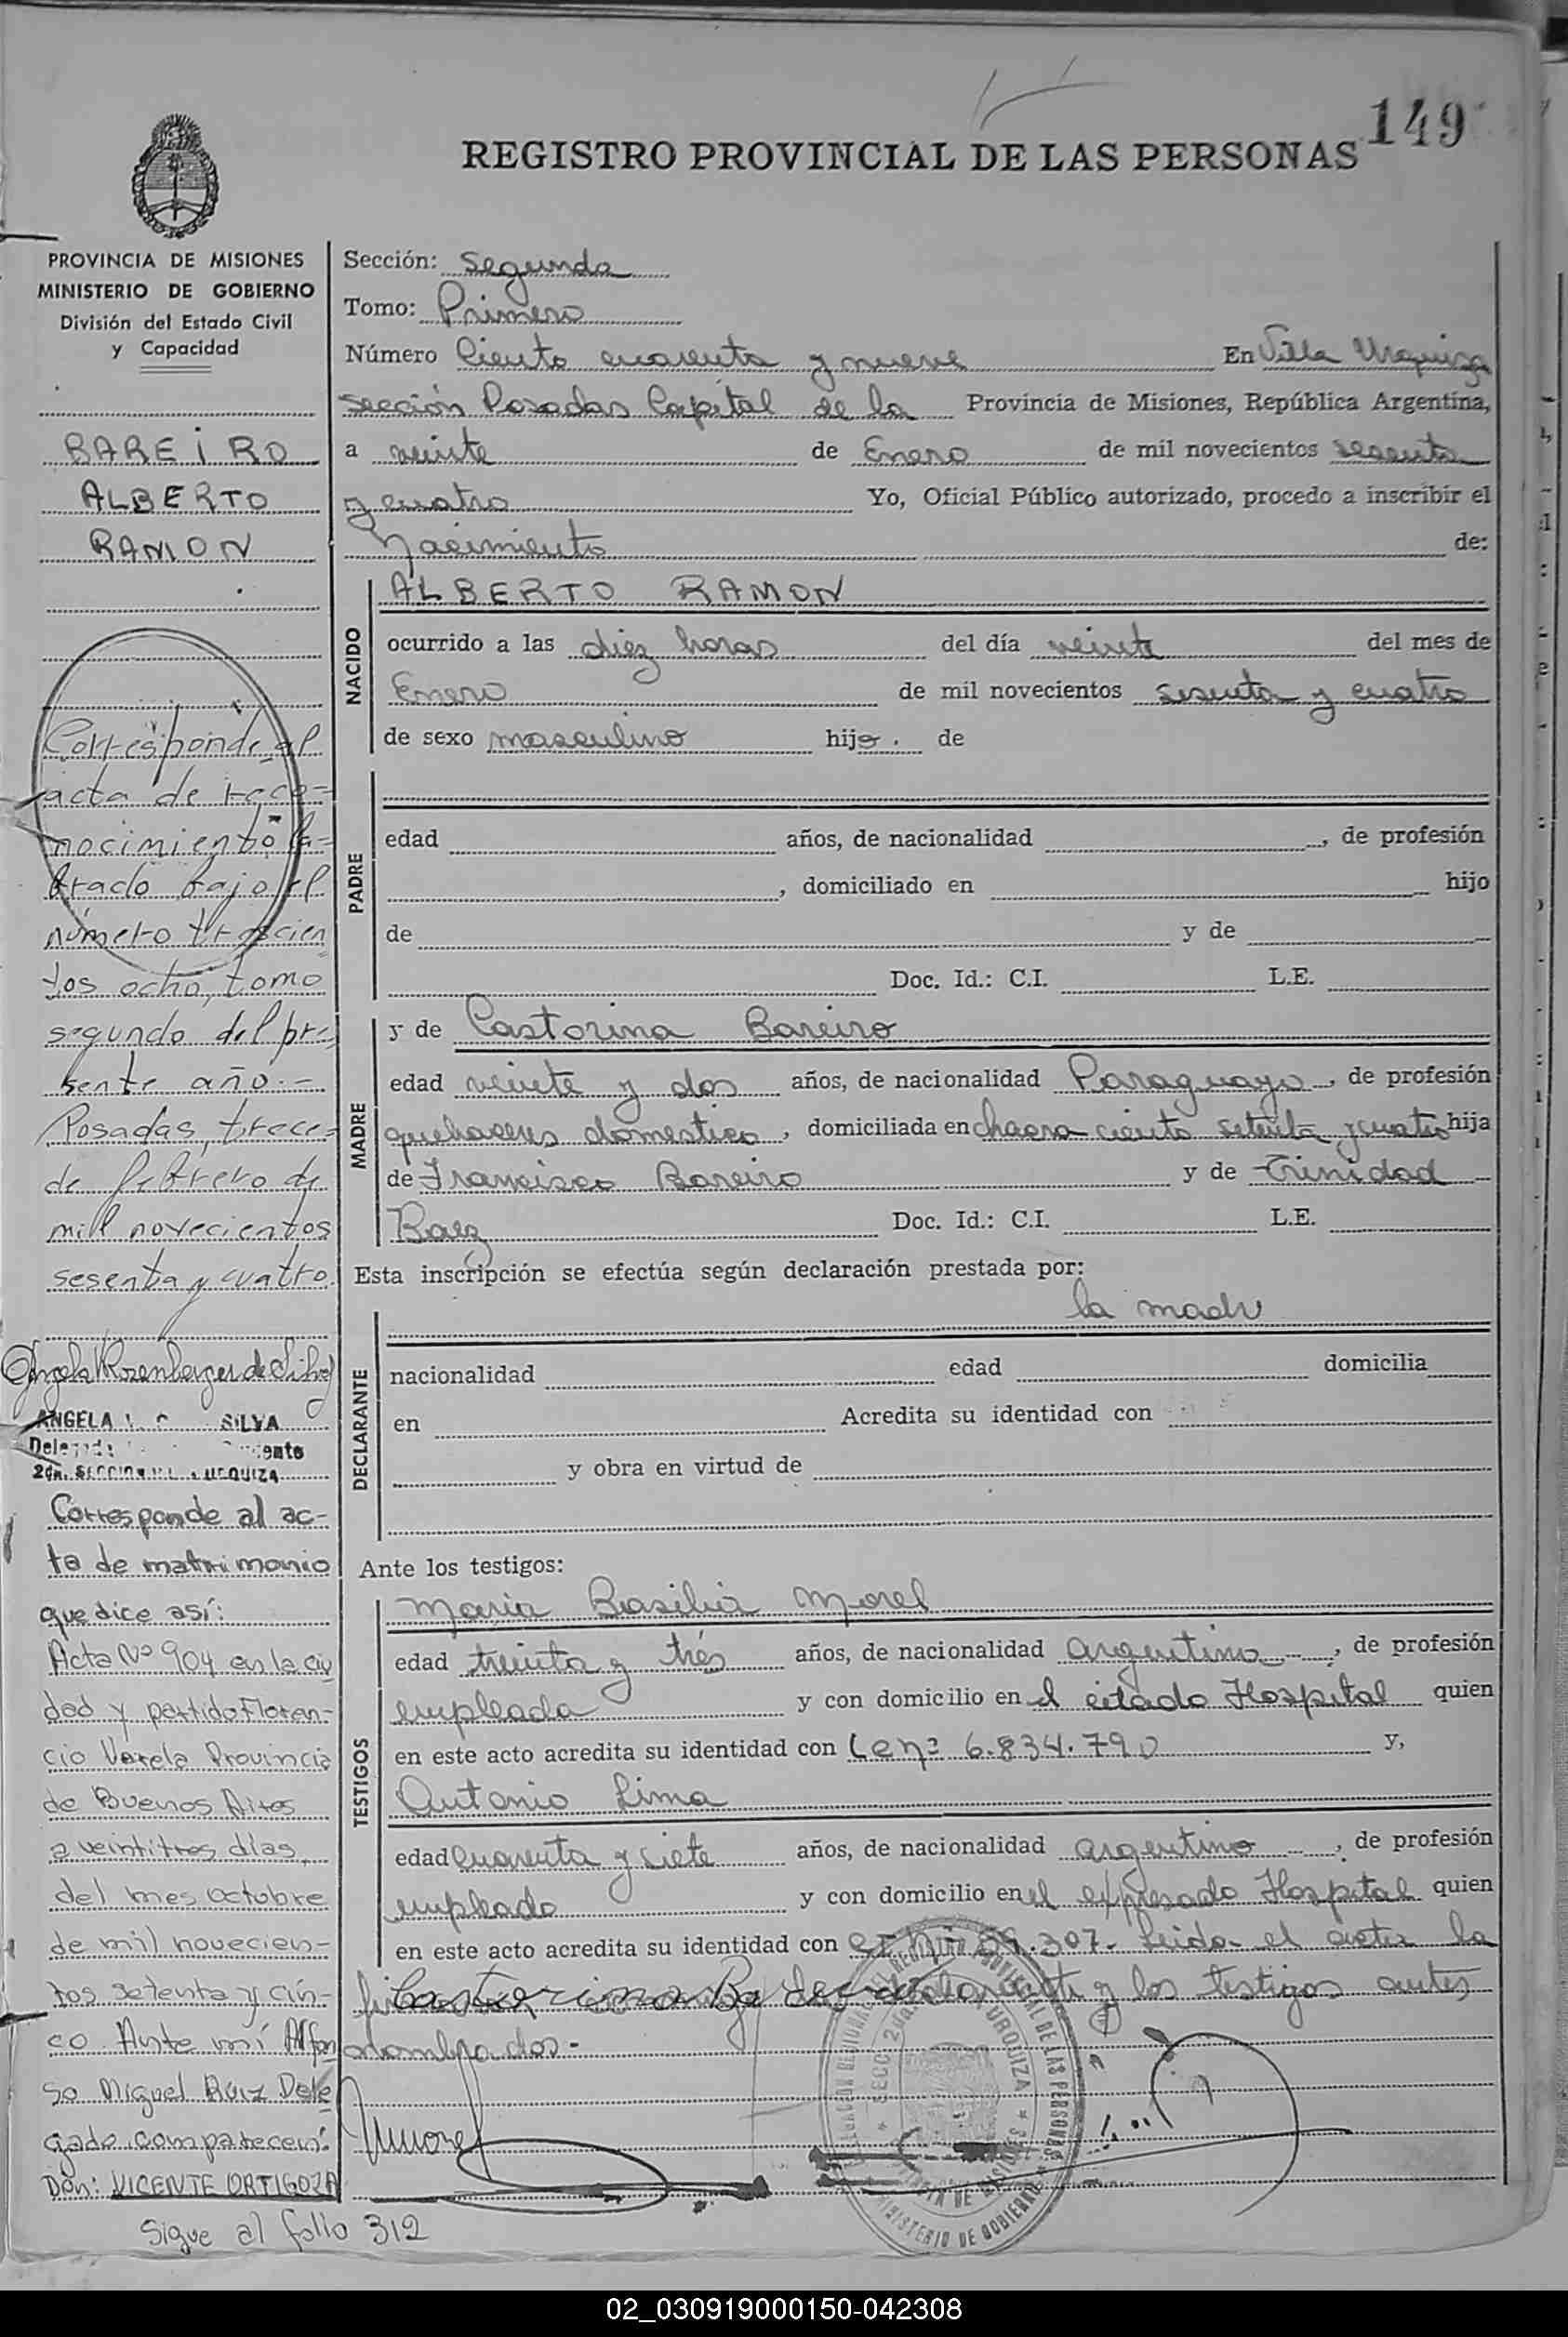 149
REGISTRO PROVINCIAL DE LAS PERSONAS
PROVINCIA DE MISIONES
MINISTERIO DE GOBIERNO
División del Estado Civil
y Capacidad
BAREIRO
ALBERTO
RAMON
Corresponde al
acta de reco-
nocimiento la-
brado bajo el
número trescien
tos ocho, tomo
segundo del pre
sente año.-
Posadas, trece
de febrero de
mil novecientos
sesenta y cuatro.
Angela Rozenberger de Silva
ANGELA SILVA
2da. SECCION URQUIZA
Corresponde al ac-
ta de matrimonio
que dice así:
Acta Nº 904 en la ciu
dad y partido Floren-
cio Varela Provincia
de Buenos Aires
a veintitres días
del mes octubre
de mil novecien-
tos setenta y cin-
co. Ante mí Alfon
so Miguel Ruiz Dele
gado comparecen:
Don: VICENTE ORTIGOZA
Sigue al folio 312
Sección: Segunda
Tomo: Primero
Número Ciento cuarenta y nueve En Villa Urquiza
Sección Posadas Capital de la Provincia de Misiones, República Argentina,
a veinte de Enero de mil novecientos sesenta
y cuatro Yo, Oficial Público autorizado, procedo a inscribir el
Nacimiento de:
NACIDO
ALBERTO RAMON
ocurrido a las diez horas del día veinte del mes de
Enero de mil novecientos sesenta y cuatro
de sexo masculino hijo. de
PADRE
edad años, de nacionalidad , de profesión
, domiciliado en hijo
de y de
Doc. Id.: C.I. L.E.
MADRE
y de Castorina Bareiro
edad veinte y dos años, de nacionalidad Paraguaya, de profesión
quehaceres domestico, domiciliada en chacra ciento setenta y cuatro hija
de Francisco Bareiro y de Trinidad
Baez Doc. Id.: C.I. L.E.
Esta inscripción se efectúa según declaración prestada por:
la madre
DECLARANTE
nacionalidad edad domicilia
en Acredita su identidad con
y obra en virtud de
Ante los testigos:
TESTIGOS
Maria Basilia Morel
edad treinta y trés años, de nacionalidad argentina, de profesión
empleada y con domicilio en el citado Hospital quien
en este acto acredita su identidad con Le nº 6.834.790 y,
Antonio Lima
edad cuarenta y siete años, de nacionalidad argentino, de profesión
empleado y con domicilio en el expresado Hospital quien
en este acto acredita su identidad con .307. Leida el acta la
y los testigos antes
nombrados.-
SECC. 2da. URQUIZA
MINISTERIO DE GOBIERNO
02_030919000150-042308